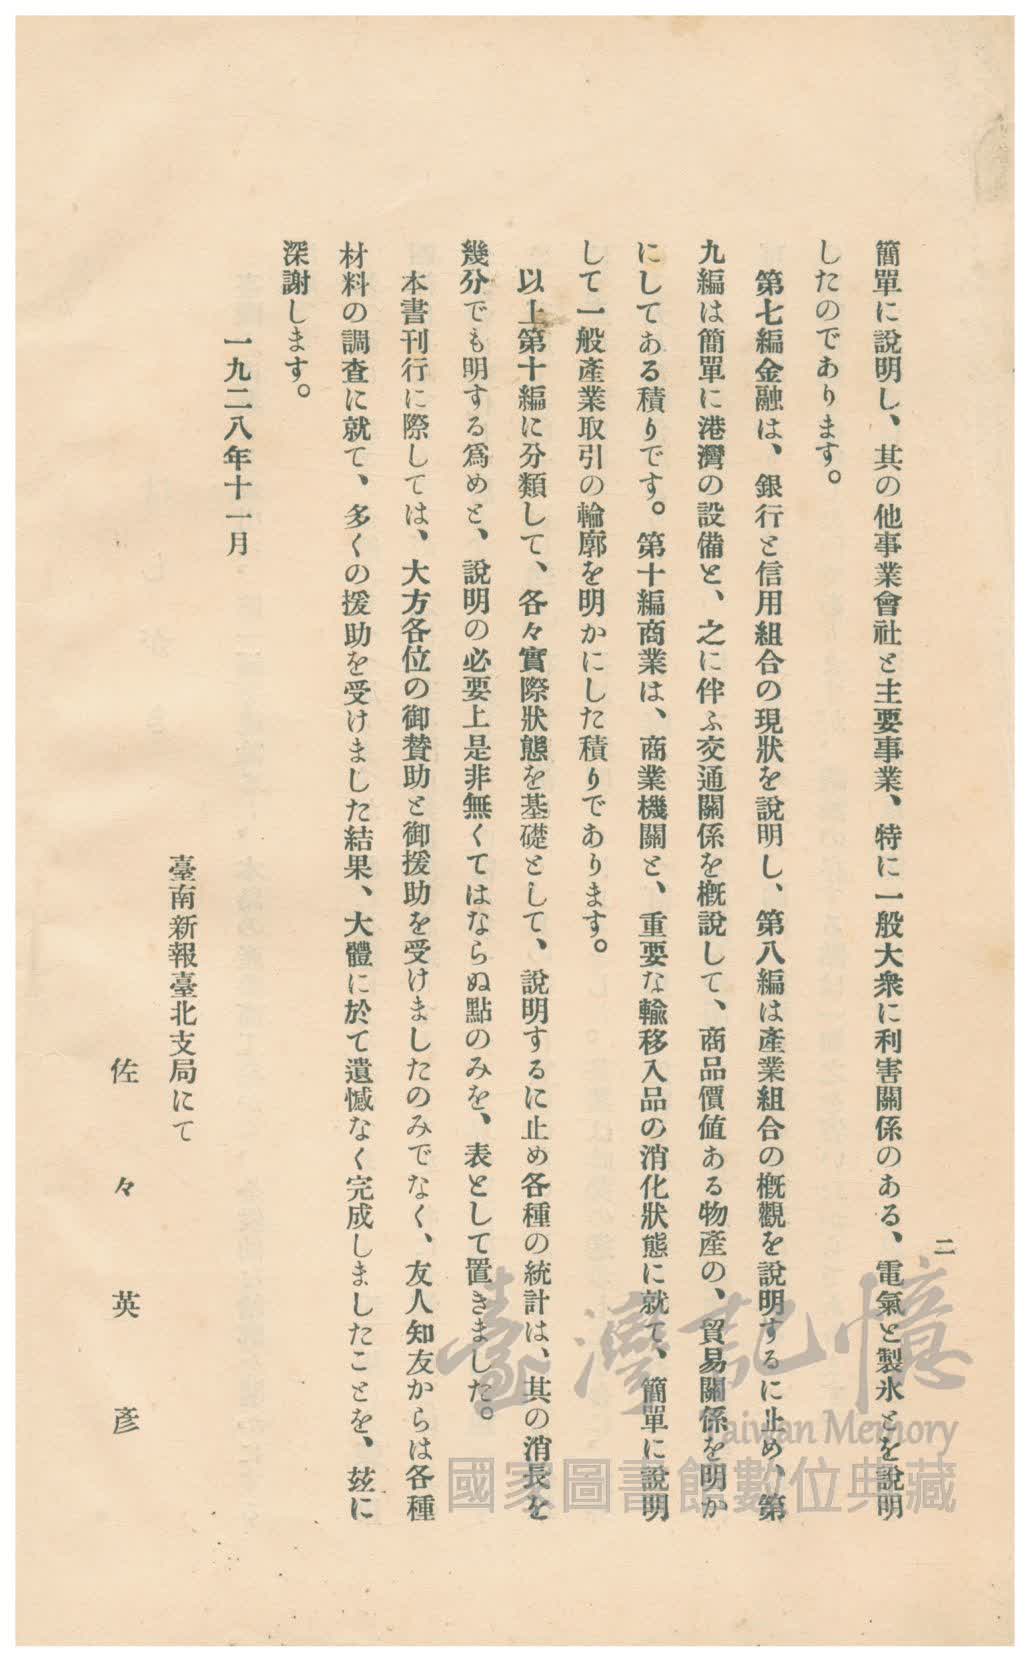 二
簡單に說明し、其の他事業會社と主要事業、特に一般大衆に利害關係のある、電氣と製氷とを說明
したのであります。
第七編金融は、銀行と信用組合の現狀を說明し、第八編は產業組合の概觀を說明するに止め、第
九編は簡單に港灣の設備と、之に伴ふ交通關係を概說して、商品價値ある物產の、貿易關係を明か
にしてある積りです。第十編商業は、商業機關と、重要な輸移入品の消化狀態に就て、簡單に說明
して一般產業取引の輪廓を明かにした積りであります。
以上第十編に分類して、各々實際狀態を基礎として、說明するに止め各種の統計は、其の消長を
幾分でも明する爲めと、說明の必要上是非無くてはならぬ點のみを、表として置きました。
本書刊行に際しては、大方各位の御賛助と御援助を受けましたのみでなく、友人知友からは各種
材料の調査に就て、多くの援助を受けました結果、大體に於て遺憾なく完成しましたことを、玆に
深謝します。
一九二八年十一月
臺南新報臺北支局にて
佐々英彥
臺灣記憶
Taiwan Memory
國家圖書館數位典藏